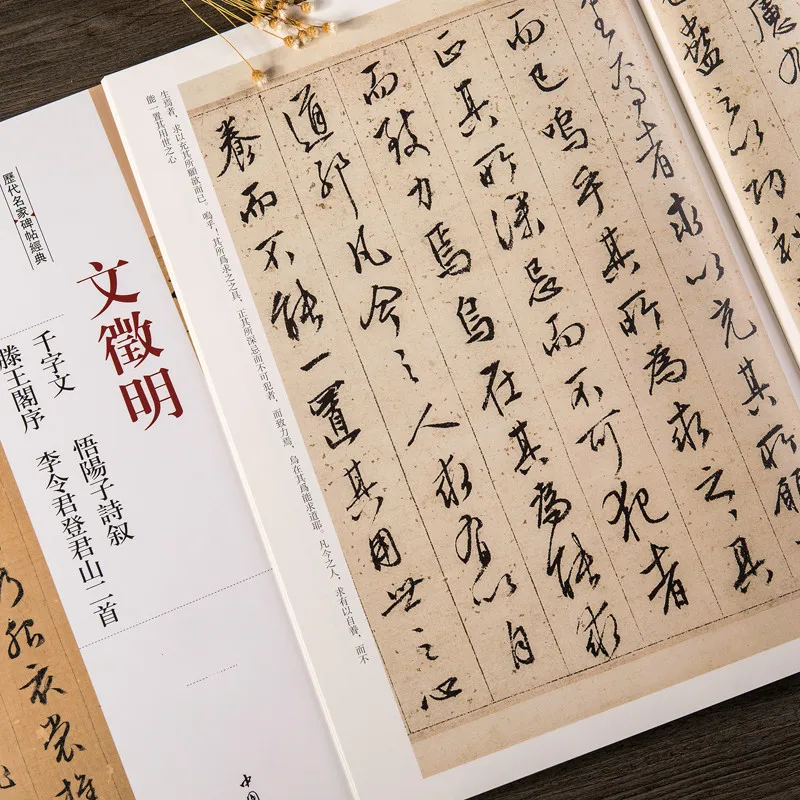 歷代名家碑帖經典
文徵明
千字文
滕王閣序
悟陽子詩叙
李令君登君山二首
生焉者，求以充其所願欲而已。嗚乎！其所爲求之之具，正其所深忌而不可犯者，而致力焉，烏在其爲能求道耶。凡今之人，求有以自養，而不
能一置其用世之心
之以功利
生焉者求以充其所願
而已嗚乎其所為求之之具
正其所深忌而不可犯者
而致力焉烏在其為能求
道耶凡今之人求有以自
養而不能一置其用世之心